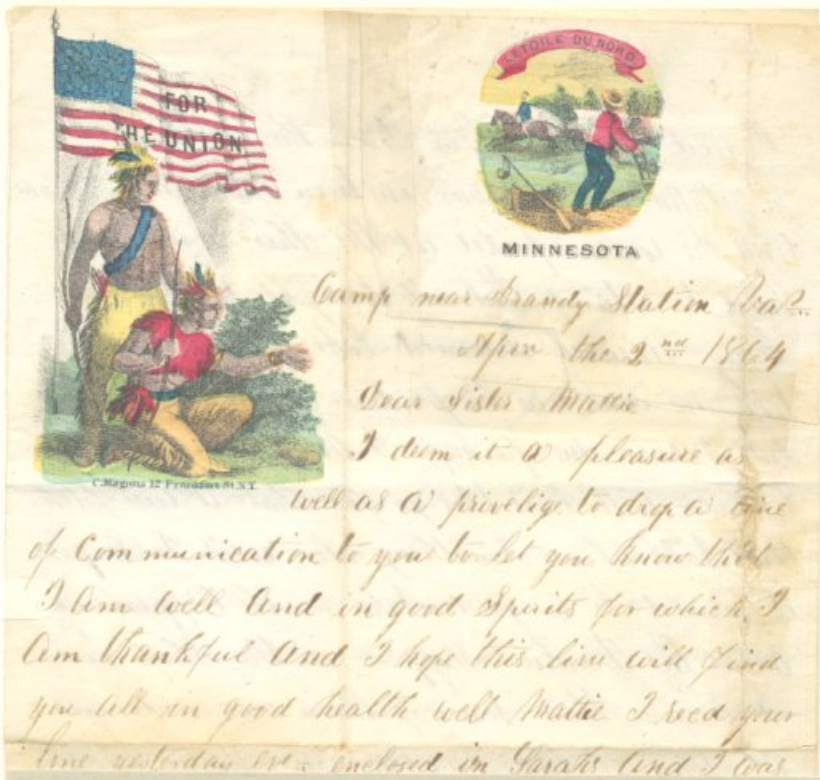 FOR
THE UNION
L'ETOILE DU NORD
MINNESOTA
C. Magnus 12 Frankfort St. N.Y.
Camp near Brandy Station Va
Apr the 2nd 1864
Dear Sister Mattie
I deem it a pleasure as
well as a privelige to drop a line
of Communication to you to let you know that
I am well and in good Spirits for which I
am thankful and I hope this line will find
you all in good health well Mattie I recd your
line yesterday eve enclosed in Sarahs and I was